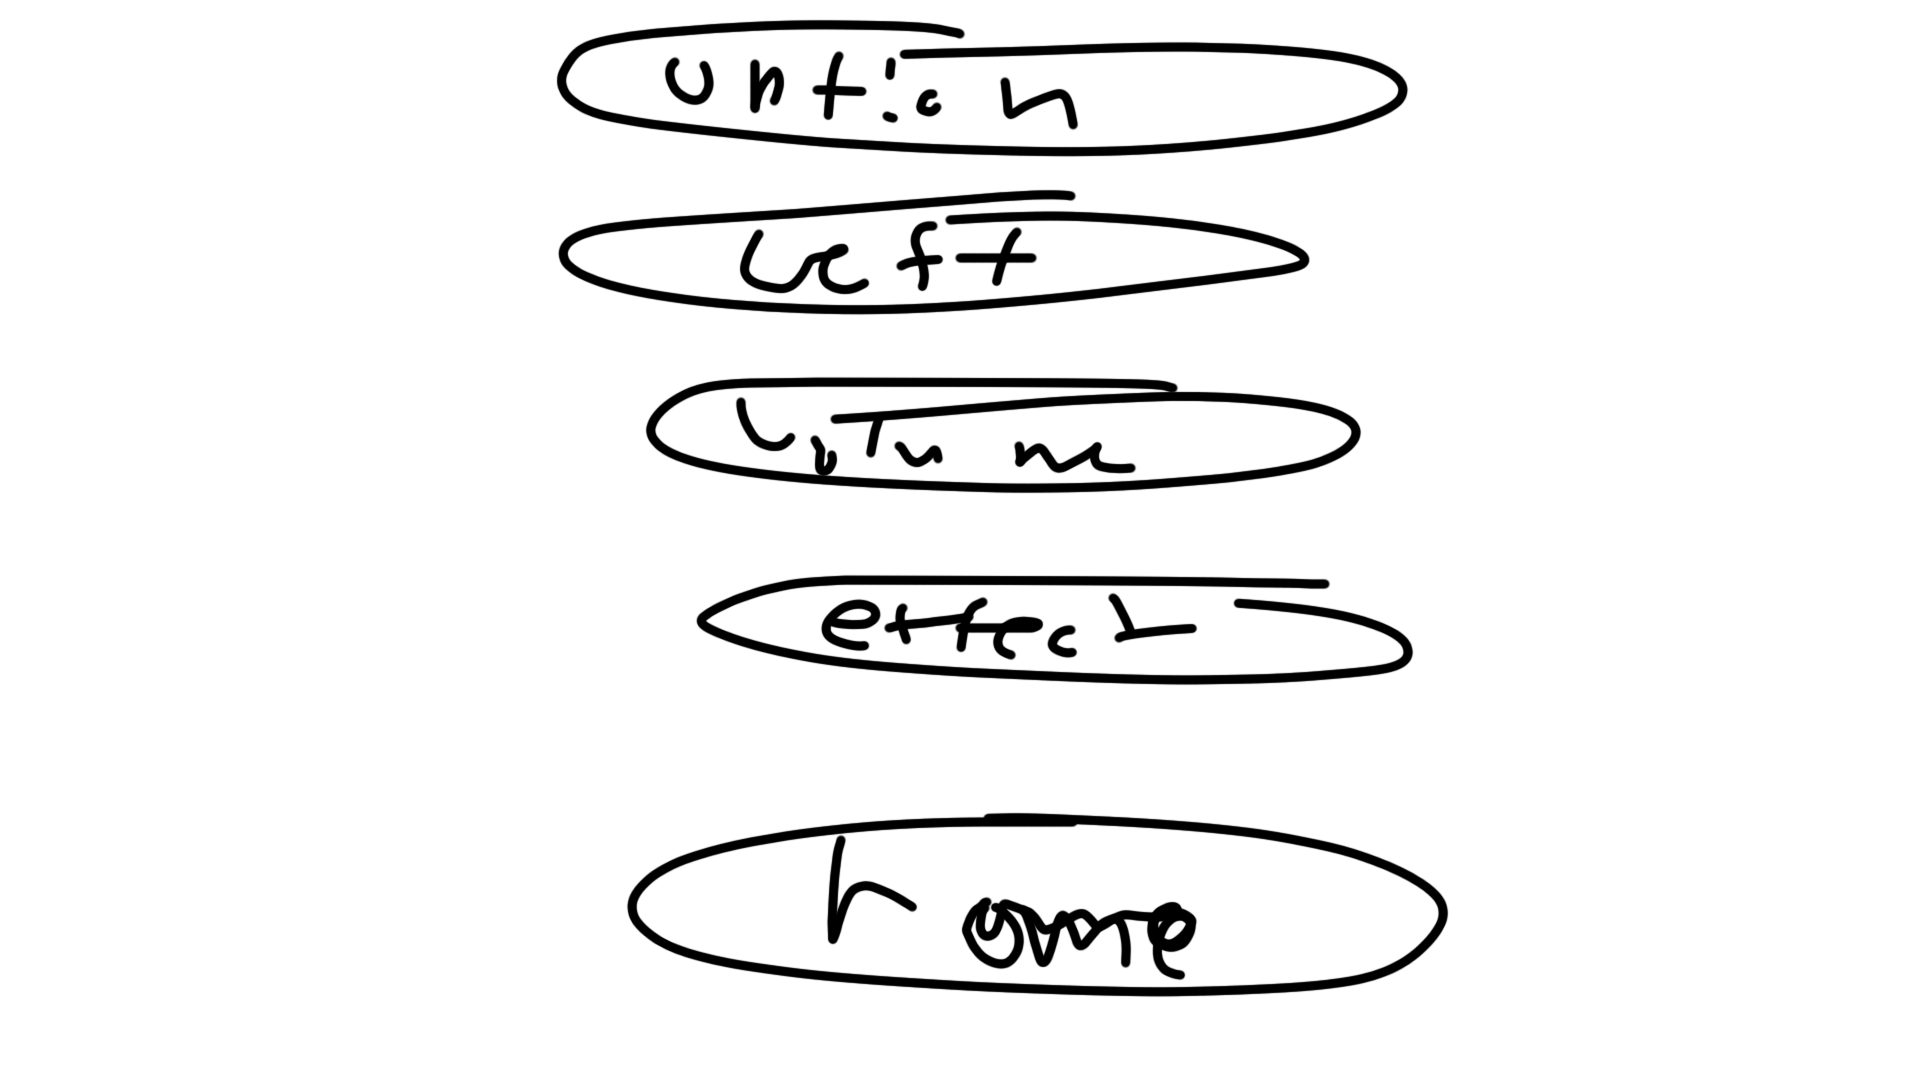 untion
Left
Volume
effect
home